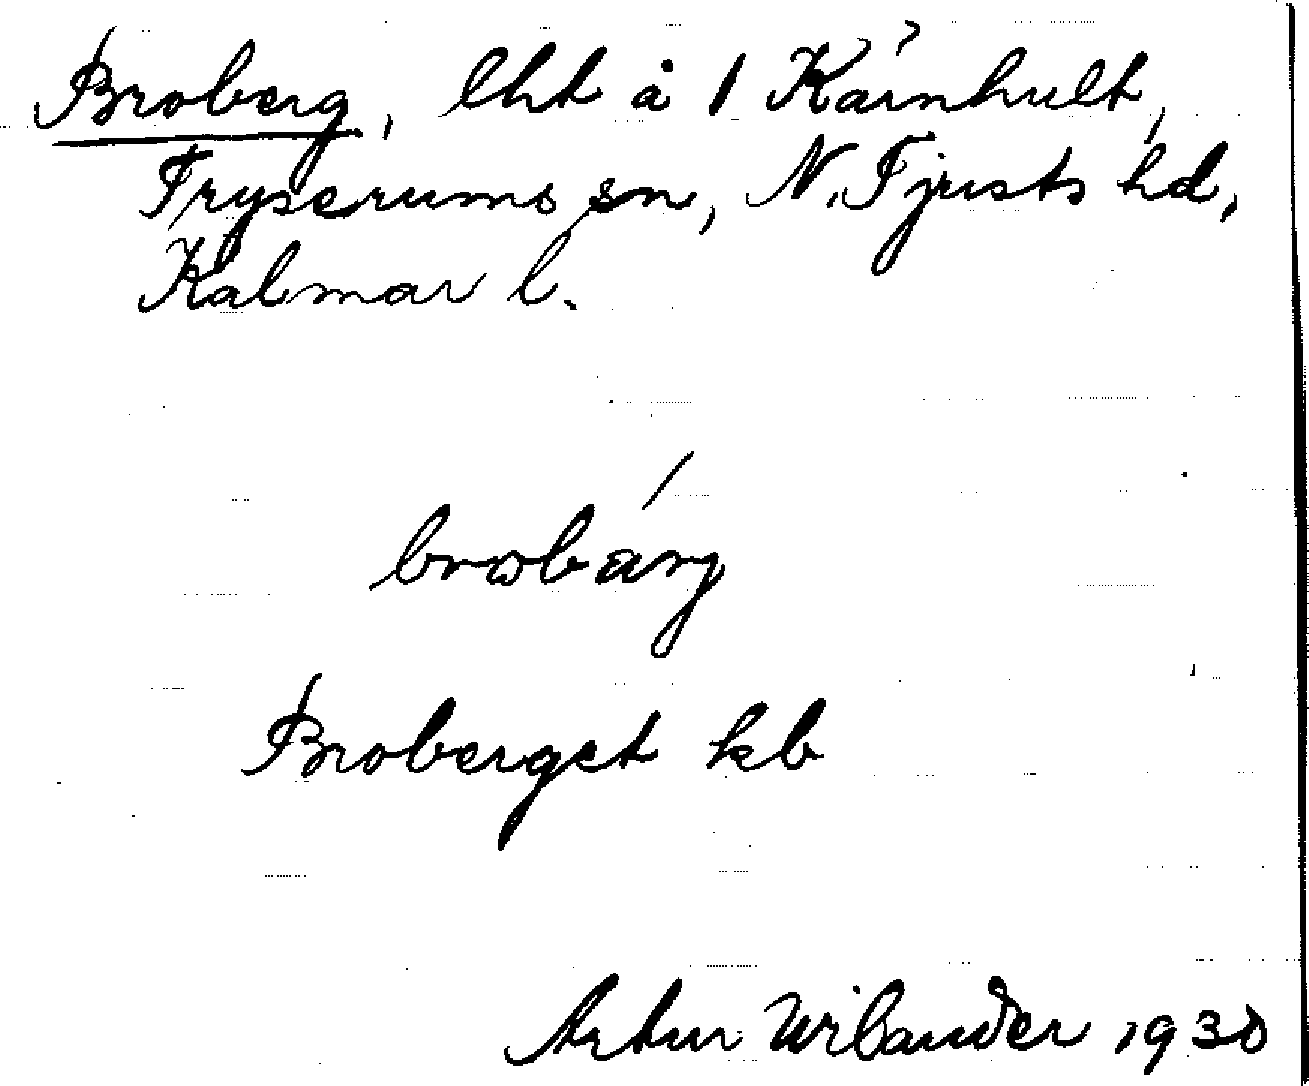 Broberg, lht å 1 Kärnhult,
Tryserums sn, N. Tjusts hd,
Kalmar l.
brobärg
Broberget kb
Artur Wilander 1930